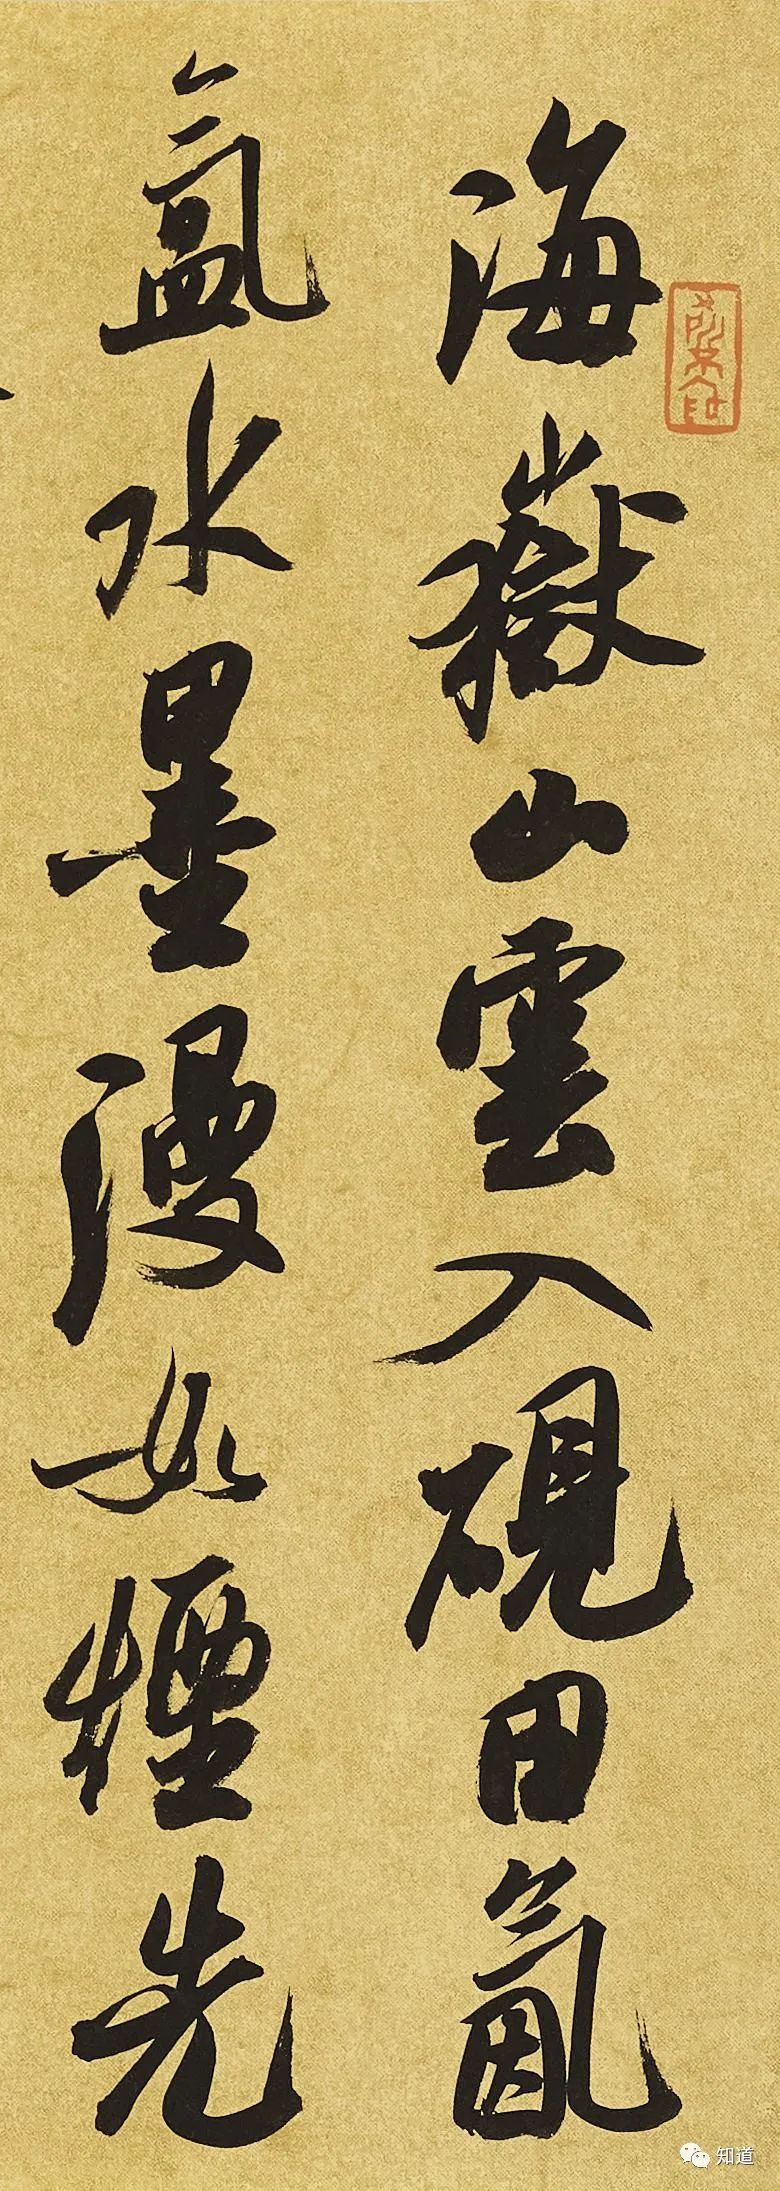 海嶽山雲入硯田氤
氳水墨漫如煙先
知道